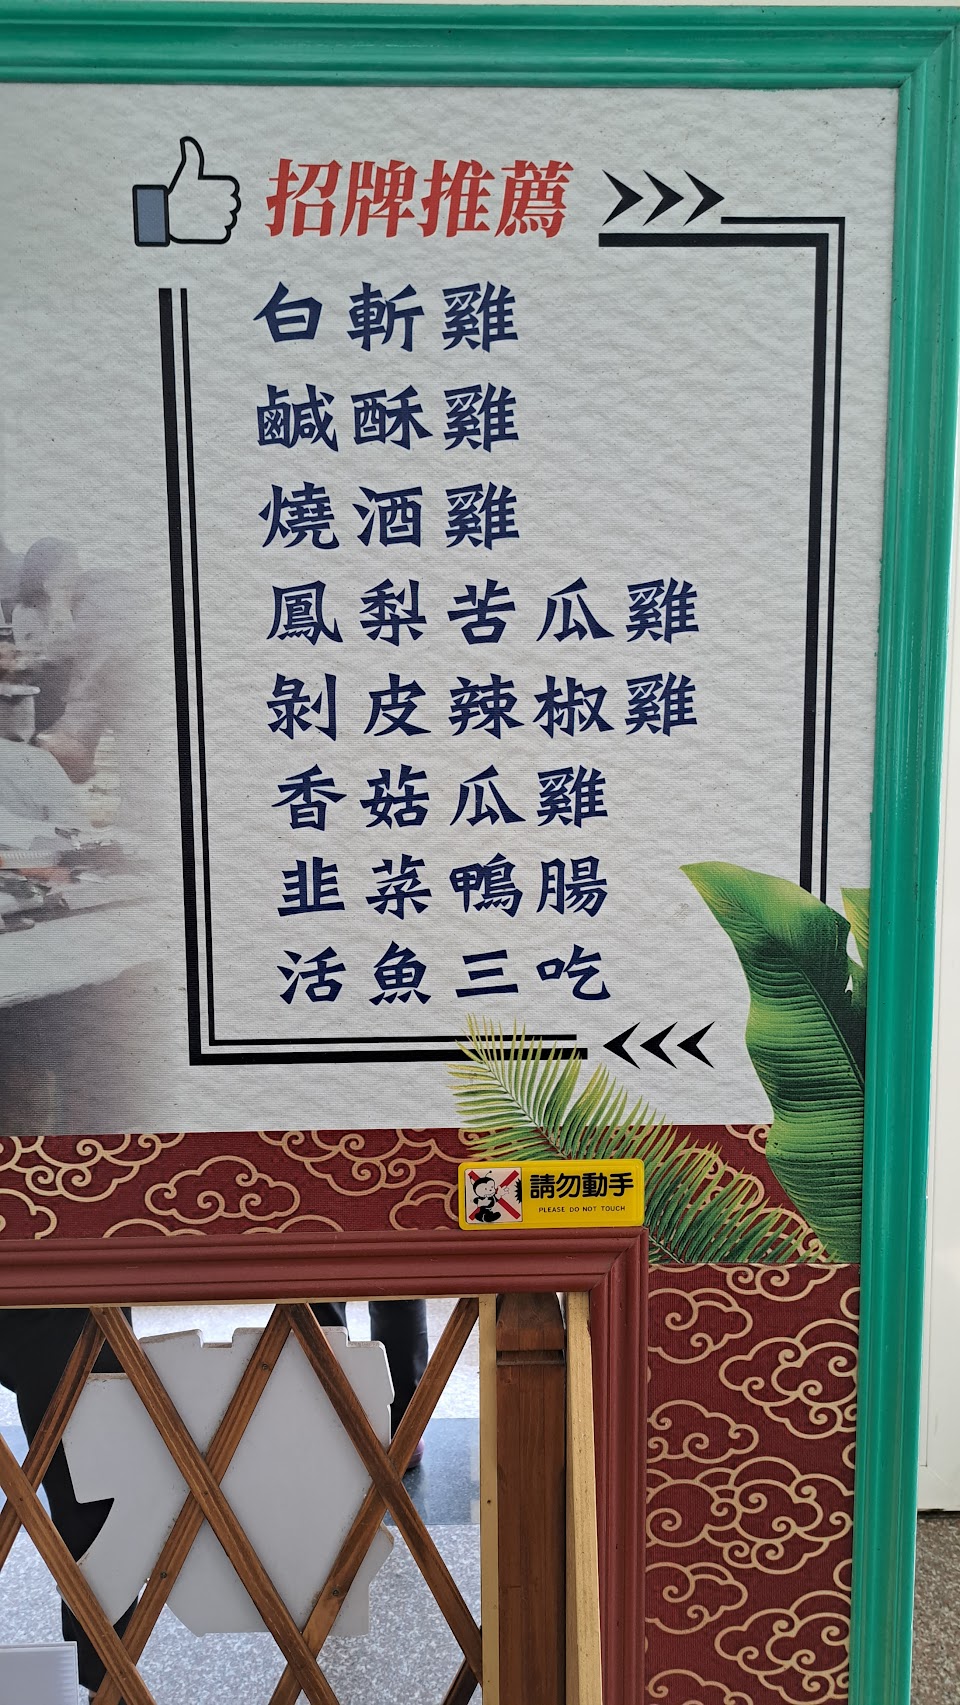 招牌推薦
白斬雞
鹹酥雞
燒酒雞
鳳梨苦瓜雞
剝皮辣椒雞
香菇瓜雞
韭菜鴨腸
活魚三吃
請勿動手
PLEASE DO NOT TOUCH